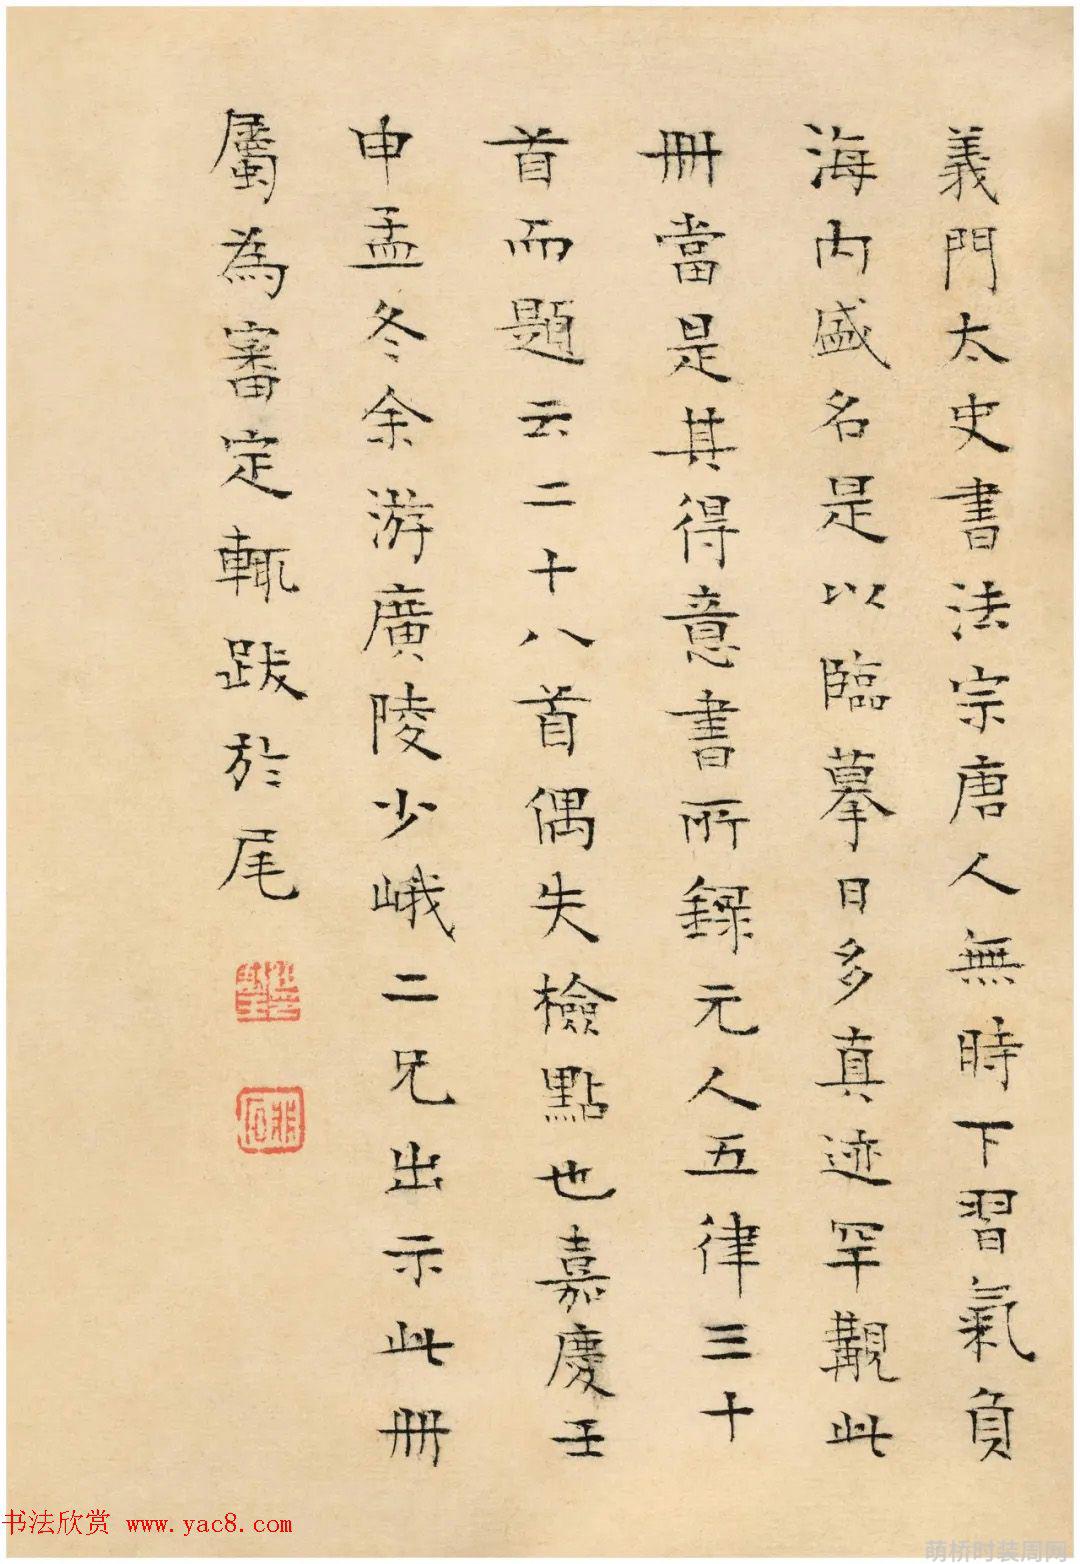 義門太史書法宗唐人無時下習氣負
海内盛名是以臨摹日多真迹罕觏此
冊當是其得意書所錄元人五律三十
首而題云二十八首偶失檢點也嘉慶壬
申孟冬余游廣陵少峨二兄出示此冊
屬為審定輒跋於尾
书法欣赏 www.yac8.com
萌桥时装周网